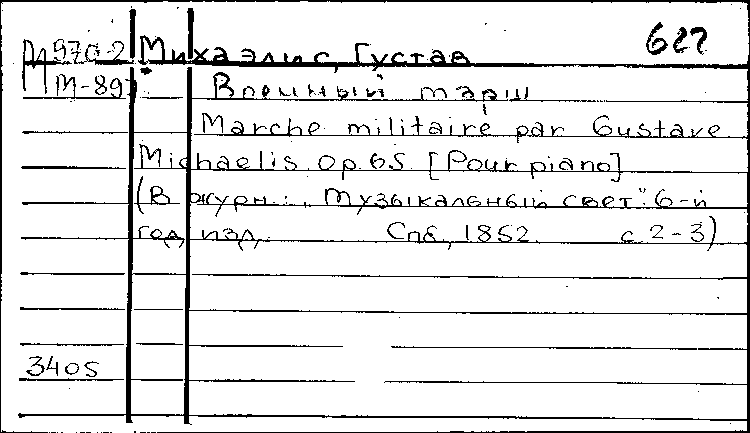 627
М 970-2 Михаэлис, Густав
М-897 Военный марш
Marche militaire par Gustave
Michaelis. Op. 65. [Pour piano]
(В журн.: „Музыкальный свет". 6-й
год изд. Спб., 1852. с 2-3)
3405